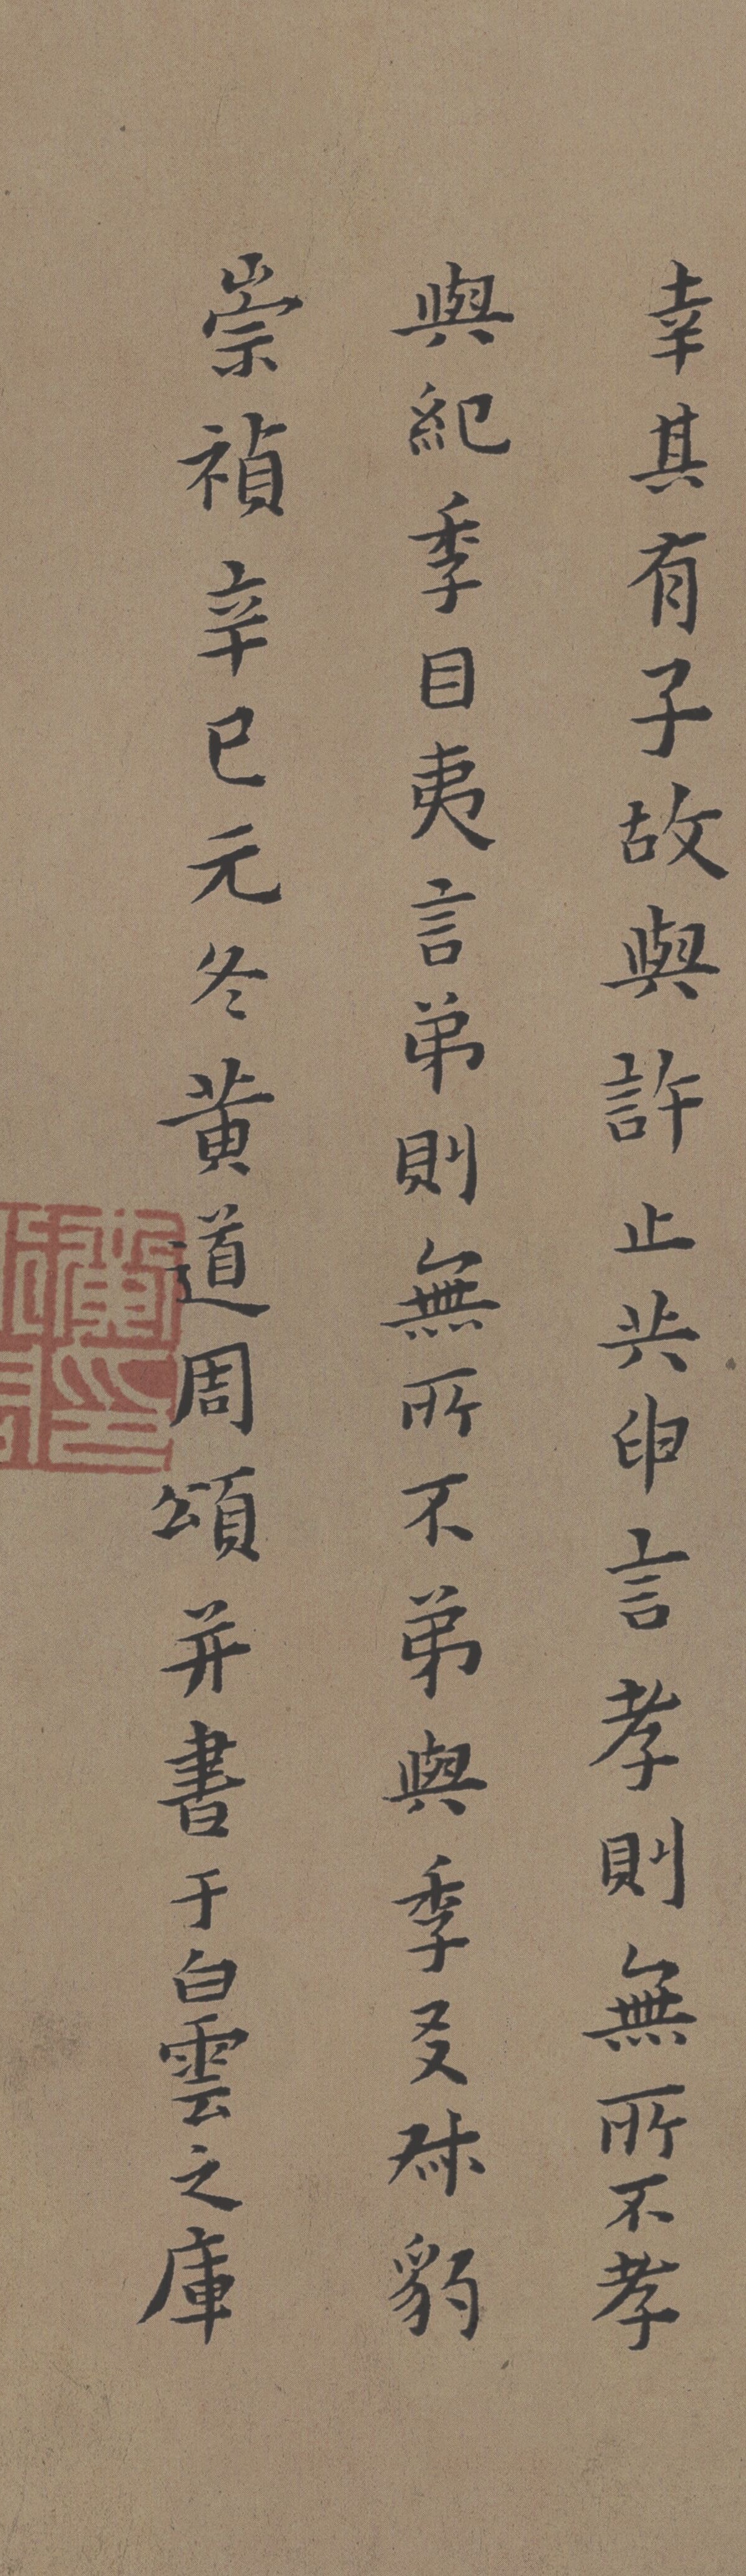 幸其有子故與許止共申言孝則無所不孝
與紀季目夷言弟則無所不弟與季友叔豹
崇禎辛巳元冬黃道周頌并書于白雲之庫